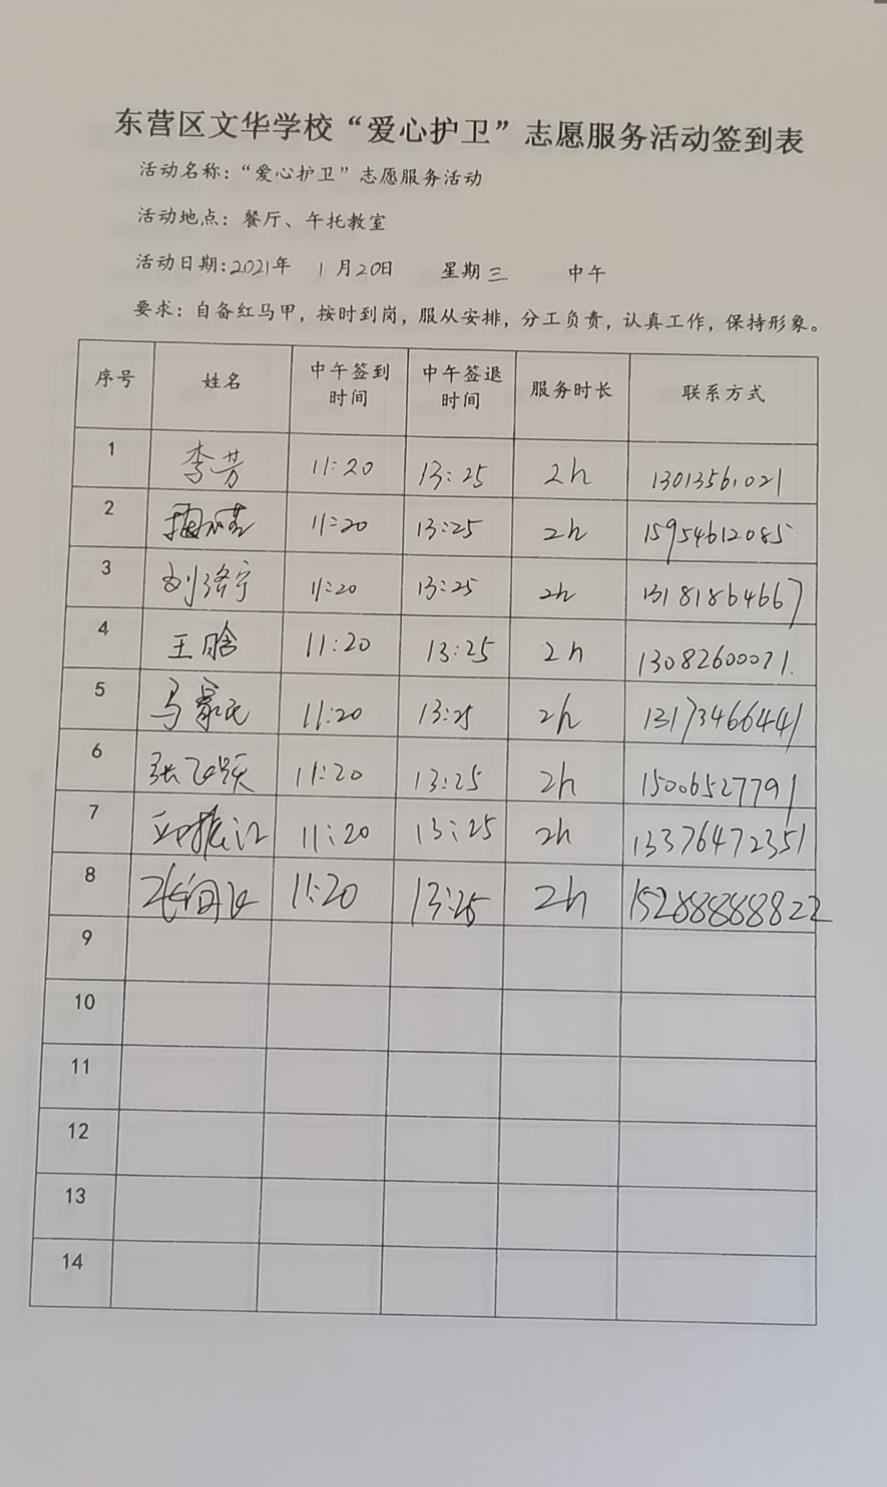 东营区文华学校“爱心护卫”志愿服务活动签到表
活动名称：“爱心护卫”志愿服务活动
活动地点：餐厅、午托教室
活动日期：2021年 1月20日 星期三 中午
要求：自备红马甲，按时到岗，服从安排，分工负责，认真工作，保持形象。
序号 姓名 中午签到时间 中午签退时间 服务时长 联系方式
1 李芳 11:20 13:25 2h 13013561021
2 11:20 13:25 2h 15954612085
3 刘 宁 11:20 13:25 2h 13181864667
4 王晗 11:20 13:25 2h 13082600071.
5 马 11:20 13:25 2h 13173466441
6 张 11:20 13:25 2h 15006527791
7 11:20 13:25 2h 13376472351
8 张 11:20 13:25 2h 15288888822
9
10
11
12
13
14